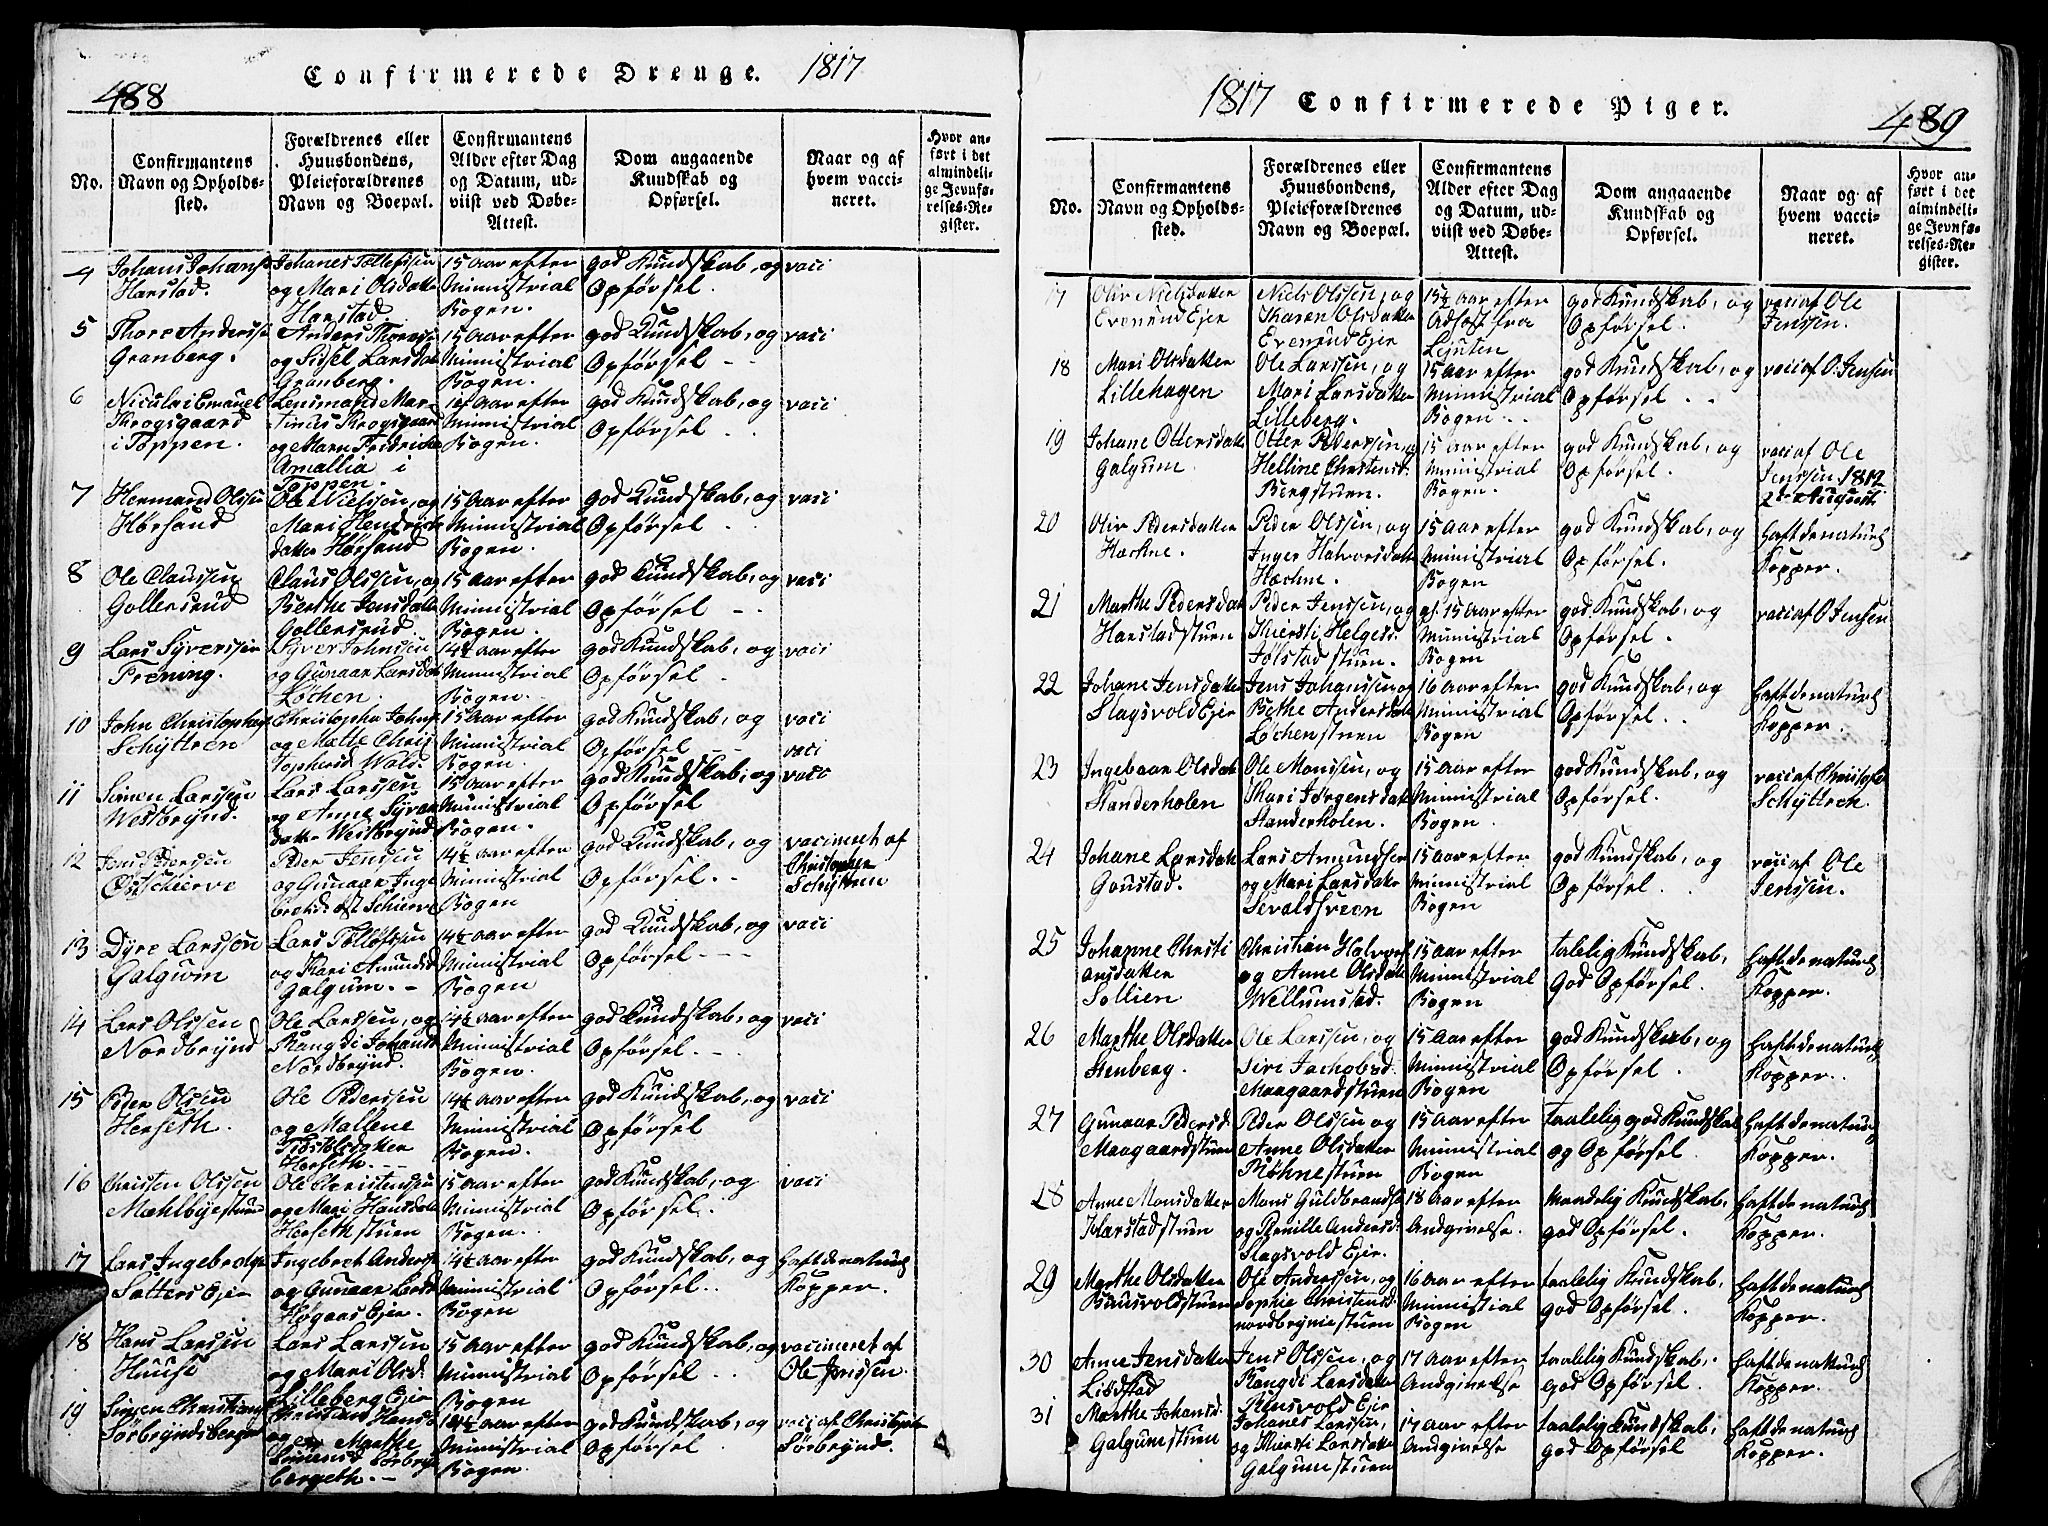 488
Confirmerede Drenge. 1817
No.
Confirmantens
Navn og Opholds-
sted.
Forældrenes eller
Huusbondens,
Pleieforældrenes
Navn og Boepæl.
Confirmantens
Alder efter Dag
og Datum, ud-
viist ved Døbe-
Attest.
Dom angaaende
Kundskab og
Opførsel.
Naar og af
hvem vacci-
neret.
Hvor an-
ført i det
almindeli-
ge Jevnfø-
relses-Re-
gister.
4
Harstad.
Johanes
og Mari Olsdatter
Harstad.
15 Aar efter
Ministrial
Bogen.
god Kundskab, og
Opførsel.
vaci
5
Thore
Granberg.
Anders
og Sidsel
Granberg.
15 Aar efter
Ministrial
Bogen.
god Kundskab, og
Opførsel
vaci
6
Nicolai Emanuel
Krogsgaard
i Toppen.
Lensmand Mar-
tinus Krogsgaard
og
Amallia i
Toppen.
Aar efter
Ministrial
Bogen.
god Kundskab, og
Opførsel
vaci
7
Hermand Olssen
Hørsand
Ole Nielssen, og
Mari
datter Hørsand
15 Aar efter
Ministrial
Bogen.
god Kundskab, og
Opførsel
vaci
8
Ole Claussen
Gollersrud
Claus Olssen, og
Berthe
Gollersrud
15 Aar efter
Ministrial
Bogen.
god Kundskab, og
Opførsel
vaci
9
Lars Syverssen
Frening.
Syver Johnsen
og Gunaar
Løchen.
14½ Aar efter
Ministrial
Bogen.
god Kundskab, og
Opførsel
vaci
10
John
Schyttren
og Mette
15 Aar efter
Ministrial
Bogen.
god Kundskab, og
Opførsel
vaci
vaci
11
Simen Larssen
Westbrynd.
Lars Larssen
og Anne
Westbrynd
15 Aar efter
Ministrial
Bogen.
god Kundskab, og
Opførsel
vaci
12
Jens Pedersen
Peder Jenssen
og Gunaar
14½ Aar efter
Ministrial
Bogen
god Kundskab, og
Opførsel
vacineret af
Christopher
Schyttren
13
Dyre Larssen
Galgum
Lars
og Kari
Galgum.
14½ Aar efter
Ministrial
Bogen
god Kundskab, og
Opførsel
vaci
14
Lars Olssen
Nordbrynd
Ole Larssen, og
Rangdi
Nordbrynd.
14½ Aar efter
Ministrial
Bogen.
god Kundskab, og
Opførsel
vaci
15
Peder Olsen
Herseth.
Ole Pederssen
og Mallene
Herseth.
14½ Aar efter
Ministrial
Bogen.
god Kundskab, og
Opførsel
vaci
16
Christen Olssen
Ole
og Mari
Herseth stuen
15 Aar efter
Ministrial
Bogen.
god Kundskab, og
Opførsel.
vaci
17
Lars
Sætters Ejer
Ingebret
og Gunaar
14½ Aar efter
Ministrial
Bogen
god Kundskab, og
Opførsel.
haft de naturl
Kopper.
18
Hans Larssen
Huuse
Lars Larssen
og Mari Olsd
Lilleberg Ejer
15 Aar efter
Ministrial
Bogen
god Kundskab, og
Opførsel
vacineret af
Ole Jenssen.
19
Simen
Christian
og Marthe
14½ Aar efter
Ministrial
Bogen
god Kundskab, og
Opførsel
vaci af
Sørbrynd.
1817 Confirmerede Piger.
489
No.
Confirmantens
Navn og Opholds-
sted.
Forældrenes eller
Huusbondens,
Pleieforældrenes
Navn og Boepæl.
Confirmantens
Alder efter Dag
og Datum, ud-
viist ved Døbe-
Attest.
Dom angaaende
Kundskab og
Opførsel.
Naar og af
hvem vacci-
neret.
Hvor an-
ført i det
almindeli-
ge Jevnfø-
relses-Re-
gister.
17
Oliv Nielsdatter
Evenrud Ejer
Niels Olssen, og
Karen Olsdatter
Evenrud Ejer
15½ Aar efter
fra
god Kundskab, og
Opførsel.
vaci af Ole
Jenssen.
18
Mari Olsdatter
Lillehagen
Ole Larssen, og
Mari Larsdatter
Lilleberg.
15 Aar efter
Ministrial
Bogen
god Kundskab, og
Opførsel
vaci af O. Jensen
19
Johane Ottersdatte
Galgum
Otter Pederssen, og
Helline
Bergstuen.
15 Aar efter
Ministrial
Bogen.
god Kundskab, og
Opførsel.
vaci af Ole
Jenssen 1812
2 August
20
Oliv Pedersdatter
Hæchne.
Peder Olssen, og
Inger Halvorsdatte
Hæchne.
15 Aar efter
Ministrial
Bogen
god Kundskab, og
Opførsel.
haft de naturl
Kopper.
21
Marthe
Harstadstuen
Peder Jenssen, og
Kiersti Helgesd
Jølstad stuen.
15 Aar efter
Ministrial
Bogen
god Kundskab, og
Opførsel.
vaci af O Jensen
22
Johane Jensdatter
Slagsvold Ejer
Jens Johanssen og
Løchenstuen
16 Aar efter
Ministrial
Bogen
god Kundskab, og
Opførsel
haft de naturl
Kopper.
23
Ingebaar
Standerholen
Ole Monssen, og
Kari
Standerholen.
15 Aar efter
Ministrial
Bogen.
god Kundskab, og
Opførsel.
vaci af
Schyttreh.
24
Johane
Gaustad.
Lars Amundsen
og Mari Larsdatter
15 Aar efter
Ministrial
Bogen
god Kundskab, og
Opførsel
vaci af Ole
Jenssen.
25
Johanne Christi
ansdatter
Sollien
Christian
og Anne
Wellumstad.
15 Aar efter
Ministrial
Bogen
talelig Kundskab,
god Opførsel.
haft de naturl
Kopper.
26
Marthe Olsdatter
Stenberg.
Ole Larssen, og
Siri
Maagaardstuen
15 Aar efter
Ministrial
Bogen
god Kundskab, og
Opførsel
haft de naturl
Kopper.
27
Gunaar Pedersd.
Maagaardstuen
Peder Olssen og
Anne Olsdatter
15 Aar efter
Ministrial
Bogen
taalelig god Kundskab
og Opførsel
haft de naturl
Kopper.
28
Anne Monsdatter
Harstadstuen
Mons
og Pernille Andersd
Slagsvold Ejer.
18 Aar efter
Andgivelse.
Maadelig Kundskab,
god Opførsel.
haft de naturl
Kopper.
29
Marthe Olsdatter
Ole Anderssen, og
Sophie Christensd
16 Aar efter
Ministrial
Bogen
taalelig Kundskab,
god Opførsel.
haft de naturl
Kopper.
30
Anne Jensdatter
Jens Olssen, og
Rangdi Larsdatter
17 Aar efter
Andgivelse
taalelig Kundskab,
god Opførsel.
haft de naturl
Kopper.
31
Marthe Johansd.
Galgumstuen
Johanes Larssen,
og Kiersti Larsdatter
Galgumstuen
17 Aar efter
Andgivelse
taalelig Kundskab,
god Opførsel
haft de naturl
Kopper.